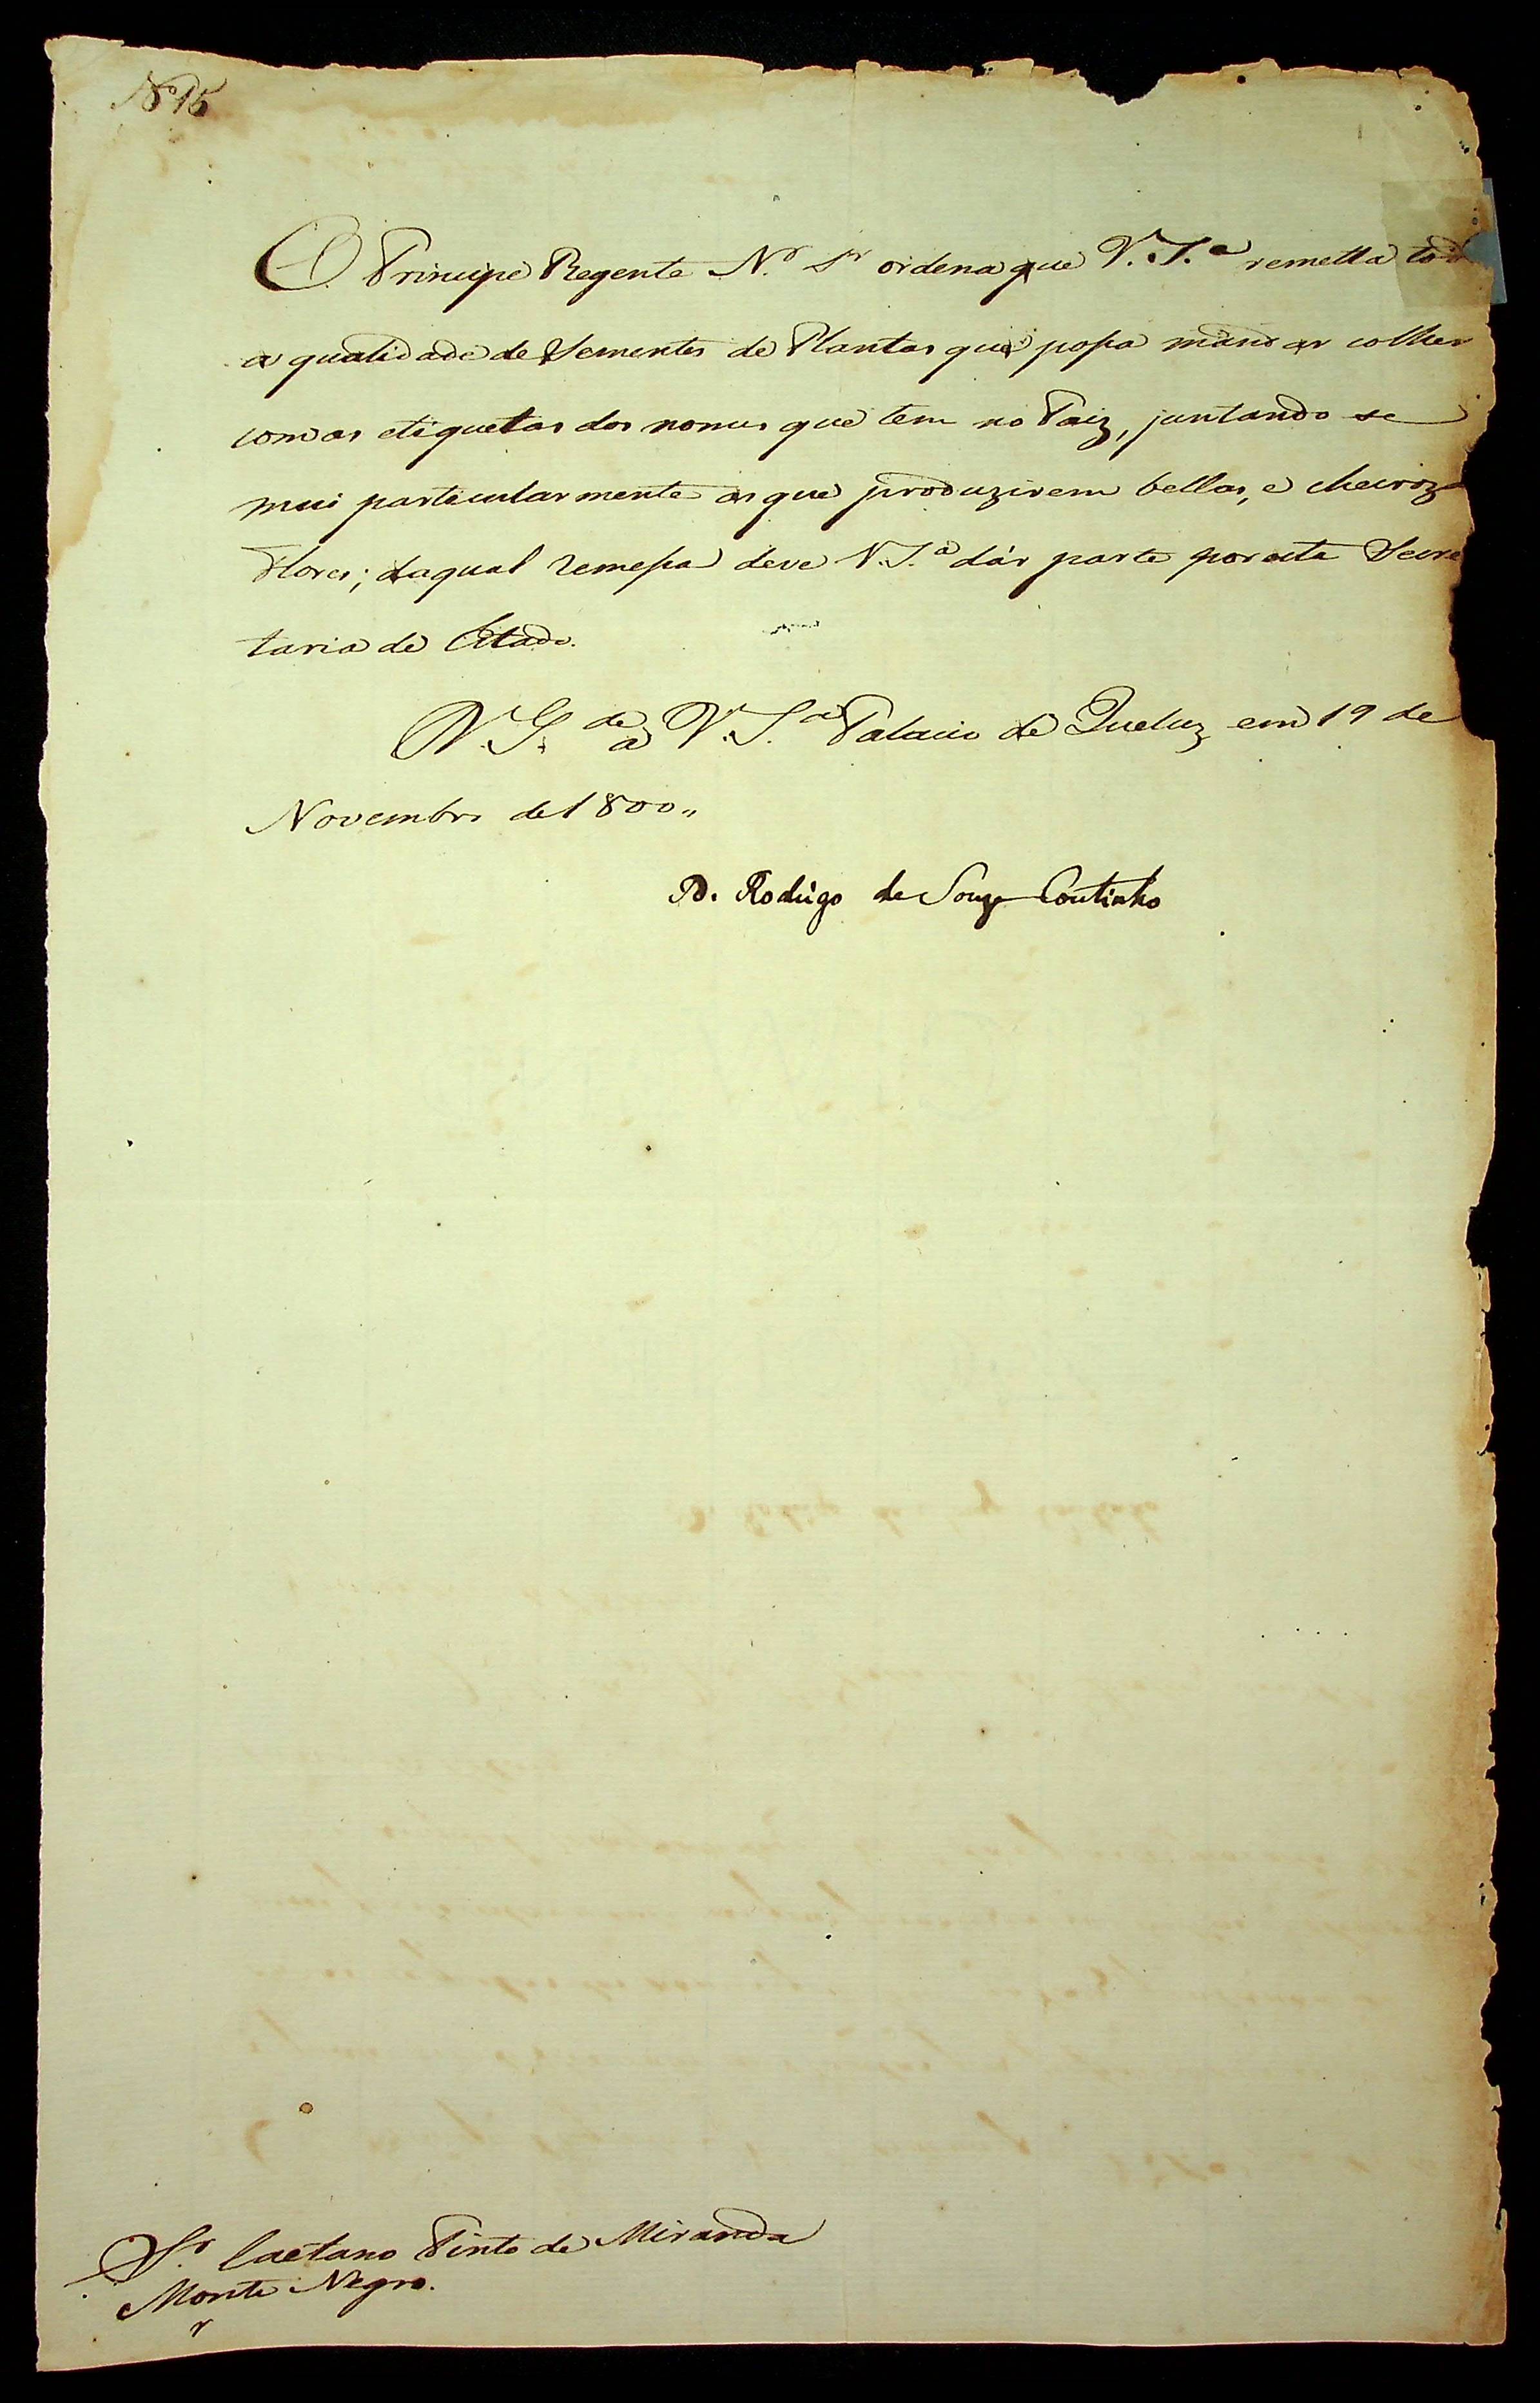 Nº 15
O Principe Regente N.º Sr ordena que V. S.ª remetta tod
a qualidade de Sementes de Plantas que possa mandar colher
com as etiquetas dos nomes que tem no Paiz, juntando se
mui particularmente as que produzirem bellas, e cheiroz
Flores; da qual remessa deve V. S.ª dár parte por esta Secre
taria de Estado.
D.s G.de a V. S.ª Palacio de Queluz em 19 de
Novembro de 1800,,
D. Rodrigo de Souza Coutinho
S.r Caetano Pinto de Miranda
Monte Negro.